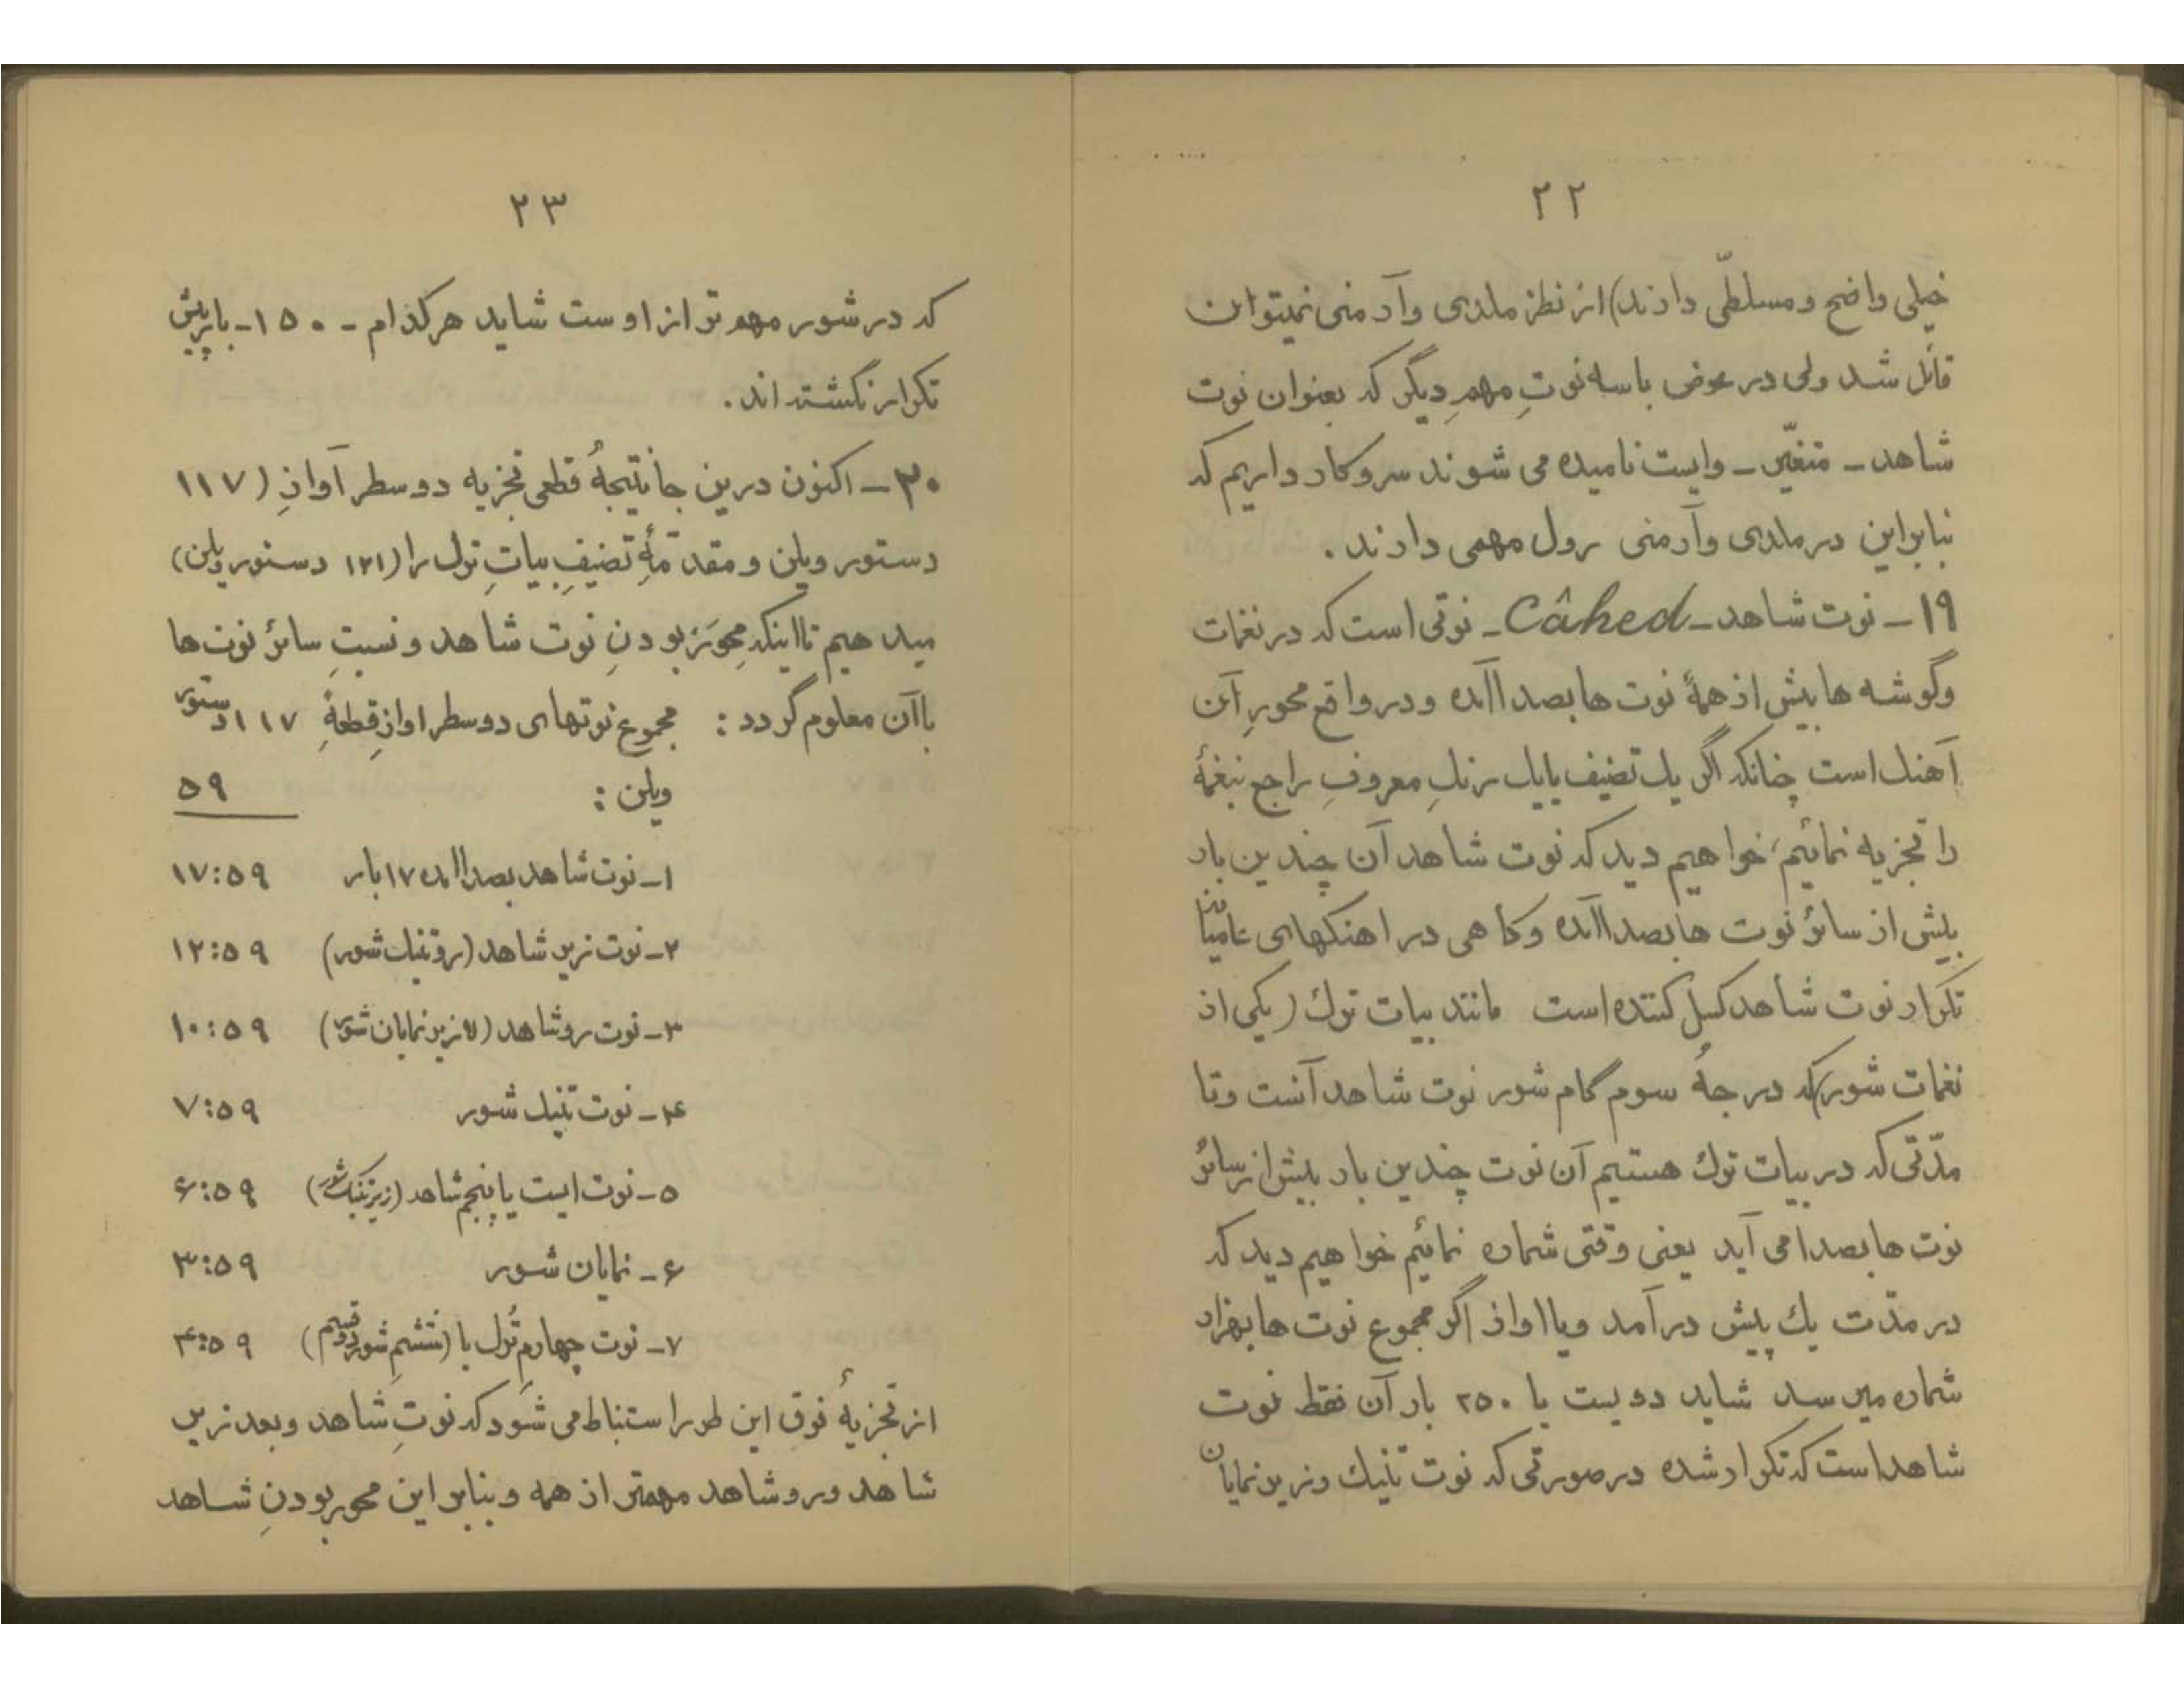 ۲۲
خیلی واضح و مسلطّی دارند) از نظر ملدی و آرمنی نمیتوان
قائل شد ولی در عوض باسه نوتِ مهمِ دیگر که بعنوان نوت
شاهد ـ متغیّر ـ وایست نامیده می شوند سروکار داریم که
بنابراین در ملدی و آرمنی رول مهمی دارند .
۱۹ ـ نوت شاهد ـ Câhed ـ نوتی است که در نغمات
وگوشه ها بیش از همهٔ نوت ها بصدا آمده و در واقع محورِ آن
آهنك است چنانکه اگر یك تصنیف یا یك رنكِ معروفِ راجع بنغمهٔ
را تجزیه نمائیم، خواهیم دید که نوت شاهد آن چندین بار
بیش از سائر نوت ها بصدا آمده و گاهی در اهنکهای عامیانه
تکرار نوت شاهد کسل کننده است مانند بیات ترك (یکی از
نغمات شور) که درجهٔ سوم گام شور نوت شاهد آنست و تا
مدّتی که در بیات ترك هستیم آن نوت چندین بار بیش از سائر
نوت ها بصدا می آید یعنی وقتی شماره نمائیم خواهیم دید که
در مدّت یك پیش درآمد و یا اواز اگر مجموع نوت ها بهزار
شماره میرسد شاید دویست یا ۲۵۰ بار آن فقط نوت
شاهد است که تکرار شده در صورتی که نوت تنیك و زیر نمایان
۲۳
که در شور مهم تر از اوست شاید هرکدام ـ ۱۵۰ ـ بار بیش
تکرار نگشته اند .
۲۰ ـ اکنون درین جا نتیجهٔ قطعی تجزیه دو سطر آوازِ (۱۱۷
دستور ویلن و مقدّمهٔ تصنیفِ بیاتِ ترك را (۱۲۱ دستور ویلن)
میدهیم تا اینکه محوَر بودنِ نوت شاهد و نسبتِ سائر نوت ها
باآن معلوم گردد : مجموع نوتهای دو سطر اوازِ قطعهٔ ۱۱۷ دستور
ویلن : ۵۹
۱ ـ نوت شاهد بصدا امده ۱۷ بار ۱۷:۵۹
۲ ـ نوت زیر شاهد (روتنیك شور) ۱۲:۵۹
۳ ـ نوت رو شاهد (لا زیر نمایان شور) ۱۰:۵۹
۴ ـ نوت تنیك شور ۷:۵۹
۵ ـ نوت ایست یا پنجم شاهد (زیر تنیك شور) ۶:۵۹
۶ ـ نمایان شور ۳:۵۹
۷ ـ نوت چهارمِ تُرك یا (ششمِ شور دوم قسم) ۴:۵۹
از تجزیهٔ فوق این طور استنباط می شَود که نوتِ شاهد و بعد زیر
شاهد و رو شاهد مهمتر از همه و بنابر این محور بودنِ شاهد